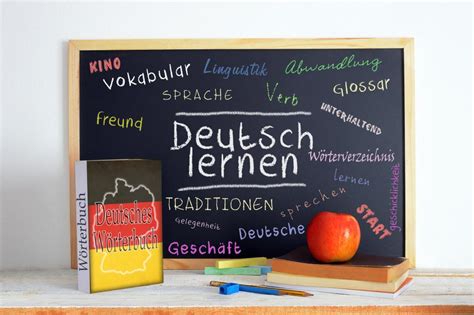 KINO
Vokabular
Linguistik
Abwandlung
SPRACHE
Verb
Glossar
Freund
UNTERHALTEND
Deutsch
lernen
Wörterverzeichnis
lernen
geschicklichkeit
TRADITIONEN
sprechen
START
Gelegenheit
Deutsche
Geschäft
Wörterbuch
Deutsches
Wörterbuch